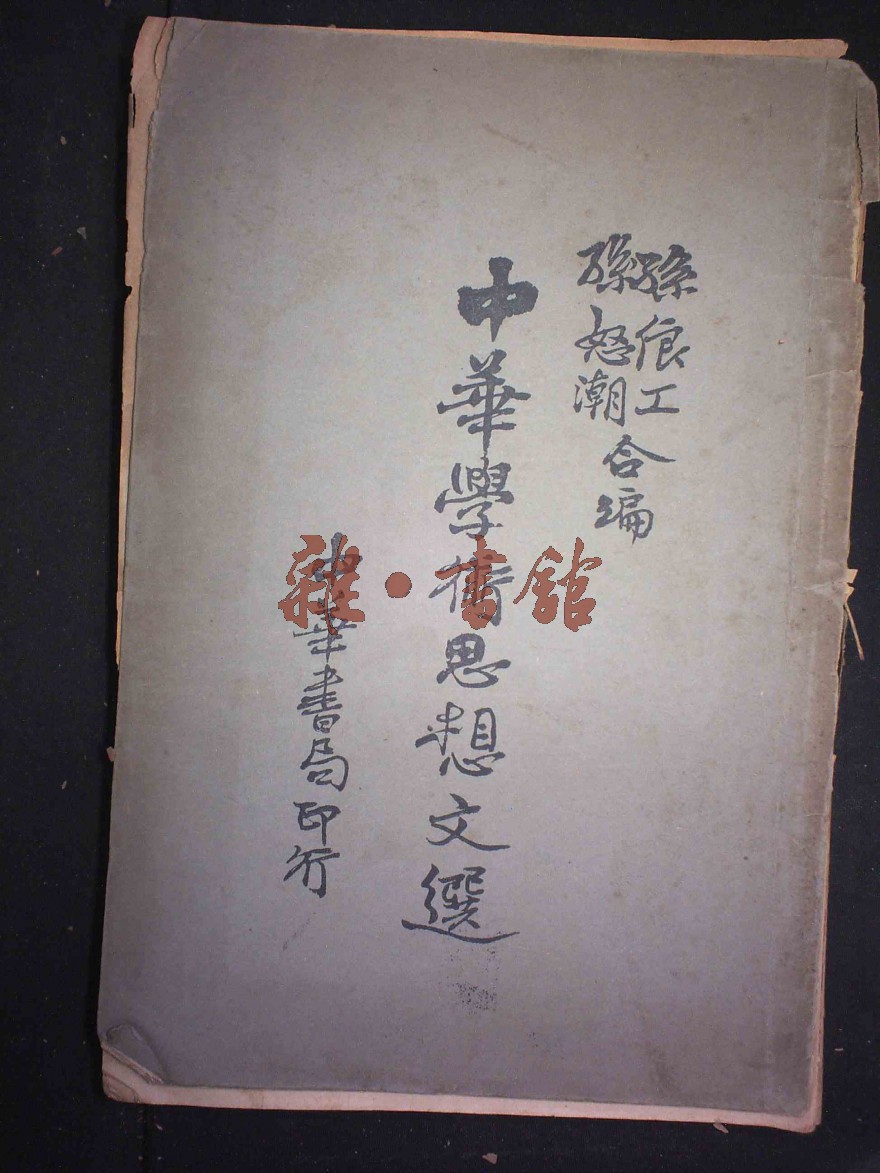 孫俍工
孫怒潮
合編
中華學術思想文選
中華書局印行
雜·書舘